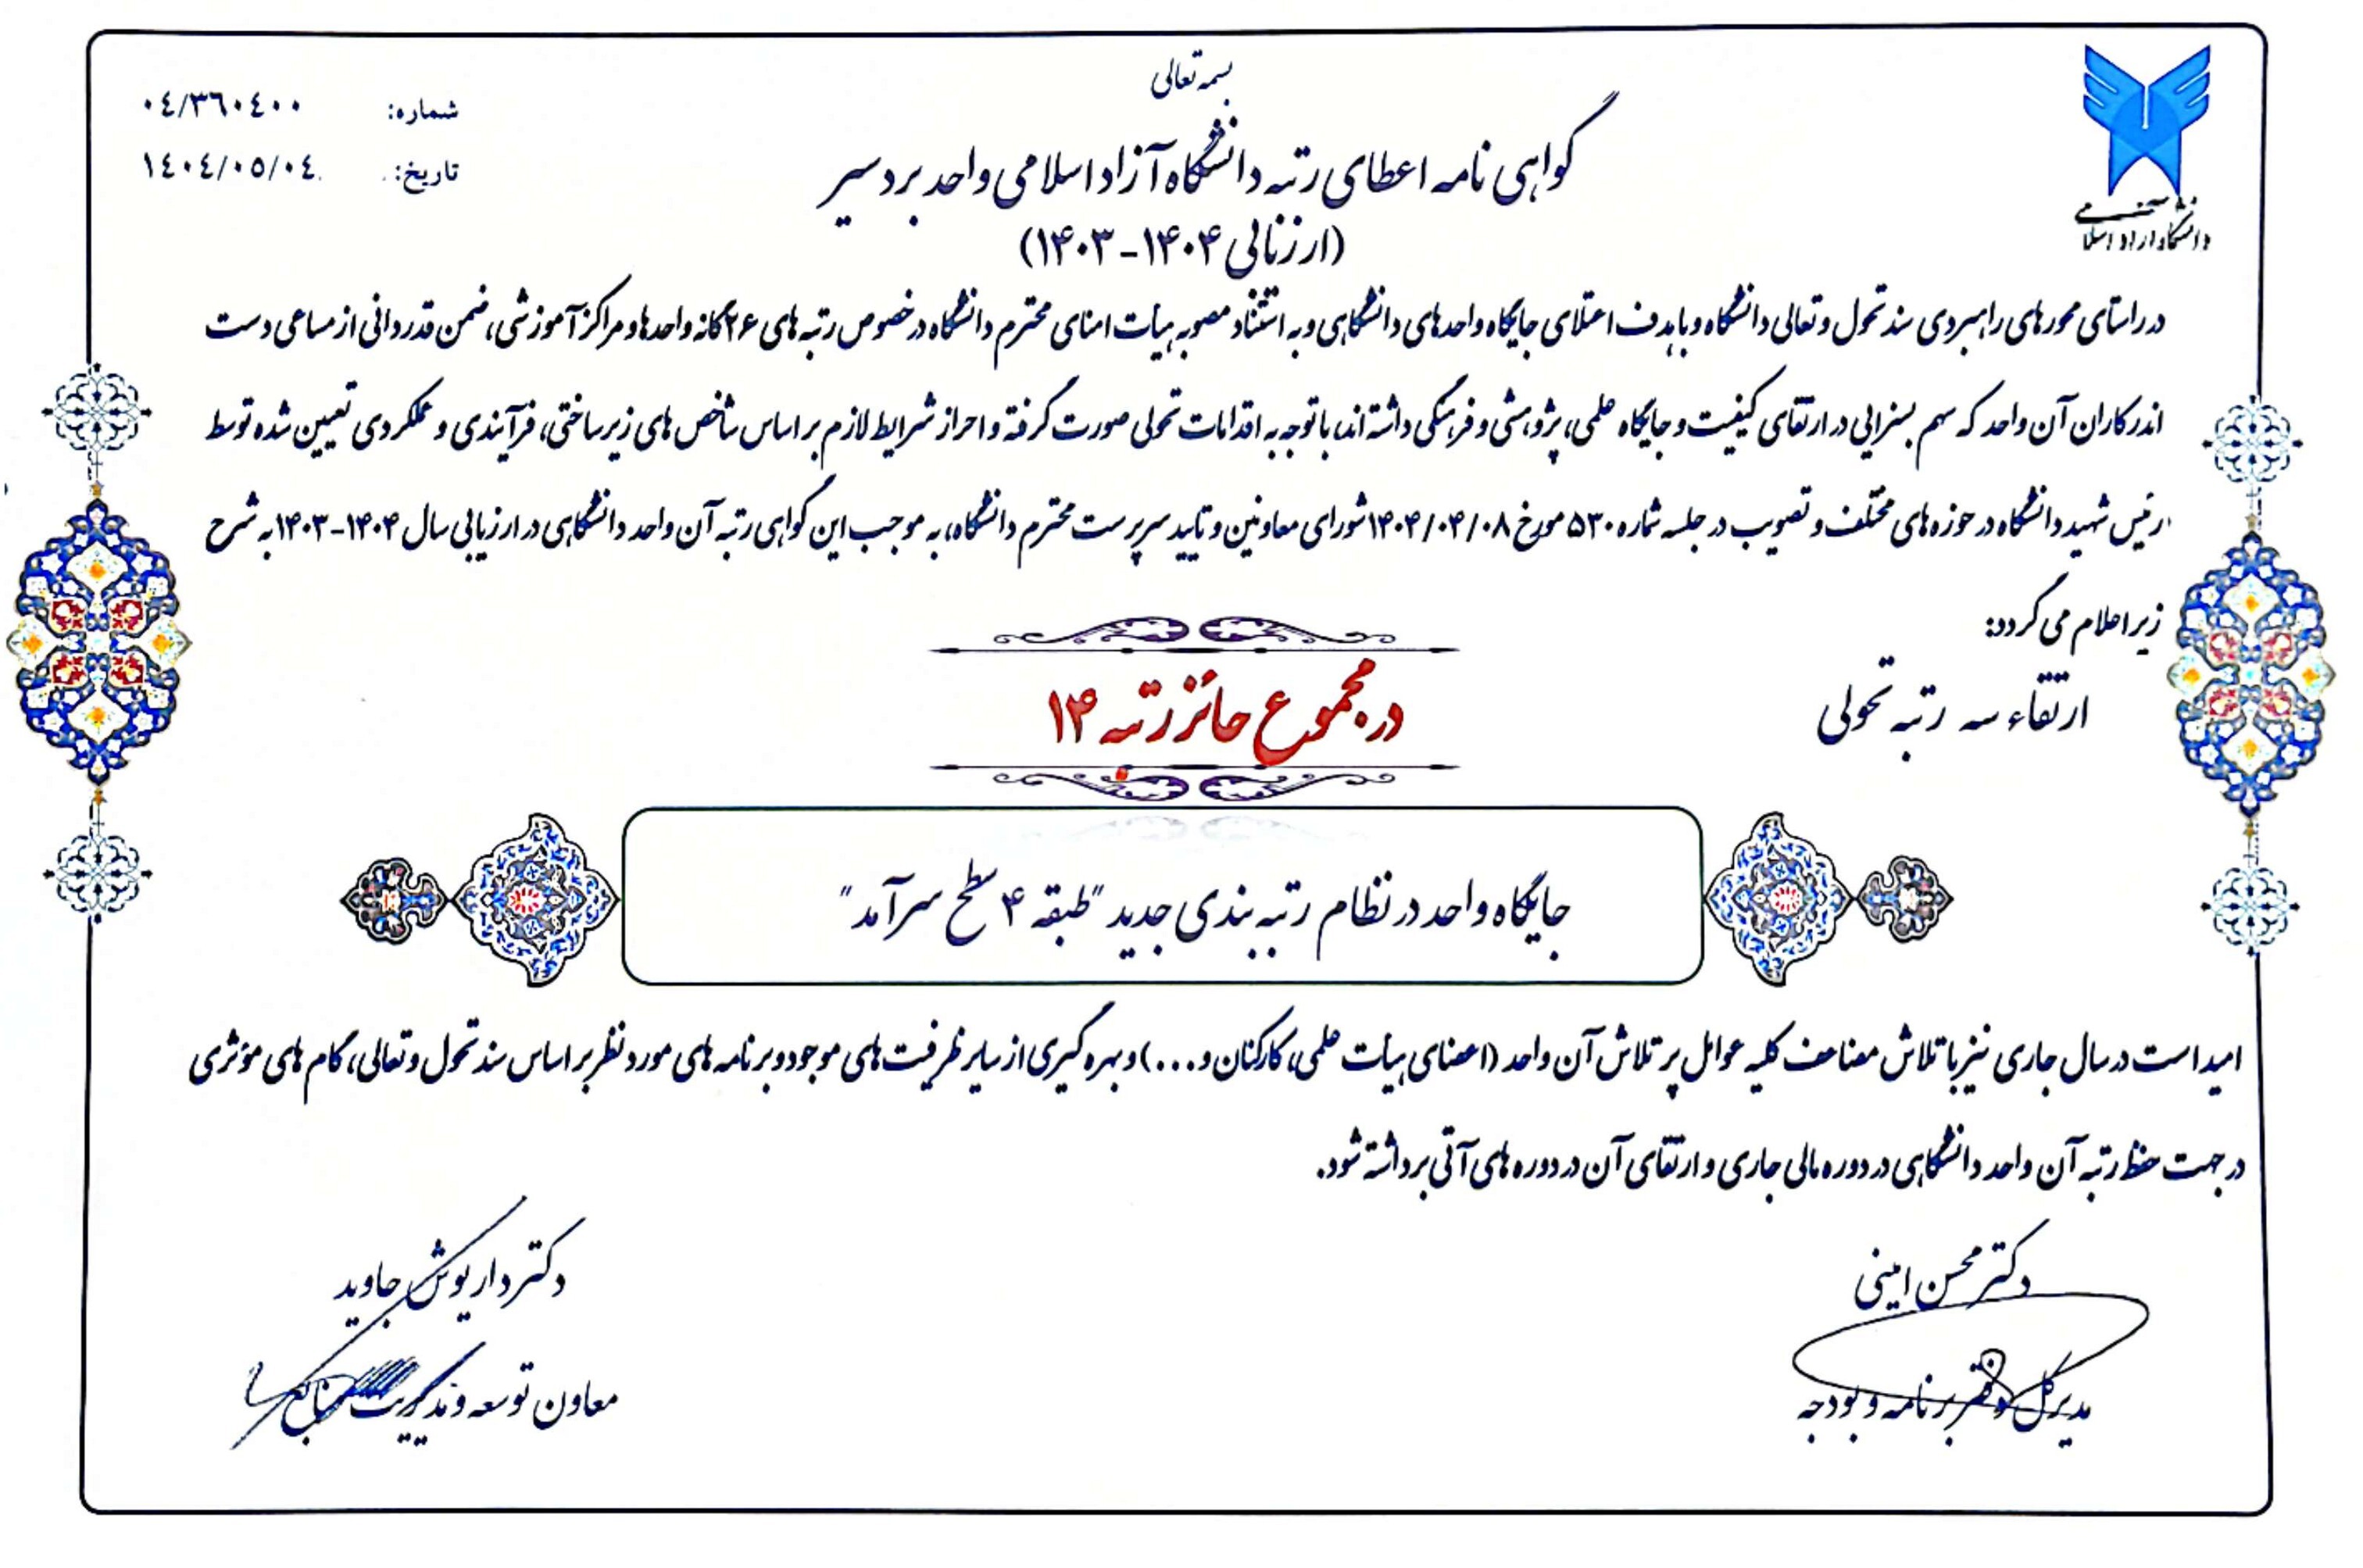 بسمه تعالی
شماره: ٠٤/٣٦٠٤٠٠
تاریخ: ١٤٠٤/٠٥/٠٤
دانشگاه آزاد اسلامی
گواهی نامه اعطای رتبه دانشگاه آزاد اسلامی واحد بردسیر
(ارزیابی ۱۴۰۴-۱۴۰۳)
در راستای محورهای راهبردی سند تحول و تعالی دانشگاه و با هدف اعتلای جایگاه واحدهای دانشگاهی و به استناد مصوبه هیات امنای محترم دانشگاه در خصوص رتبه های ۲۶ گانه واحدها و مراکز آموزشی، ضمن قدردانی از مساعی دست
اندرکاران آن واحد که سهم بسزایی در ارتقای کیفیت و جایگاه علمی، پژوهشی و فرهنگی داشته اند، با توجه به اقدامات تحولی صورت گرفته و احراز شرایط لازم بر اساس شاخص های زیرساختی، فرآیندی و عملکردی تعیین شده توسط
رئیس شهید دانشگاه در حوزه های مختلف و تصویب در جلسه شماره ۵۳۰ مورخ ۱۴۰۴/۰۴/۰۸ شورای معاونین و تایید سرپرست محترم دانشگاه، به موجب این گواهی رتبه آن واحد دانشگاهی در ارزیابی سال ۱۴۰۴-۱۴۰۳ به شرح
زیر اعلام می گردد:
ارتقاء سه رتبه تحولی
در مجموع حائز رتبه ۱۴
جایگاه واحد در نظام رتبه بندی جدید "طبقه ۴ سطح سرآمد"
امید است در سال جاری نیز با تلاش مضاعف کلیه عوامل پر تلاش آن واحد (اعضای هیات علمی، کارکنان و...) و بهره گیری از سایر ظرفیت های موجود و برنامه های مورد نظر بر اساس سند تحول و تعالی، گام های مؤثری
در جهت حفظ رتبه آن واحد دانشگاهی در دوره مالی جاری و ارتقای آن در دوره های آتی برداشته شود.
دکتر محسن امینی
مدیر کل دفتر برنامه و بودجه
دکتر داریوش جاوید
معاون توسعه و مدیریت منابع